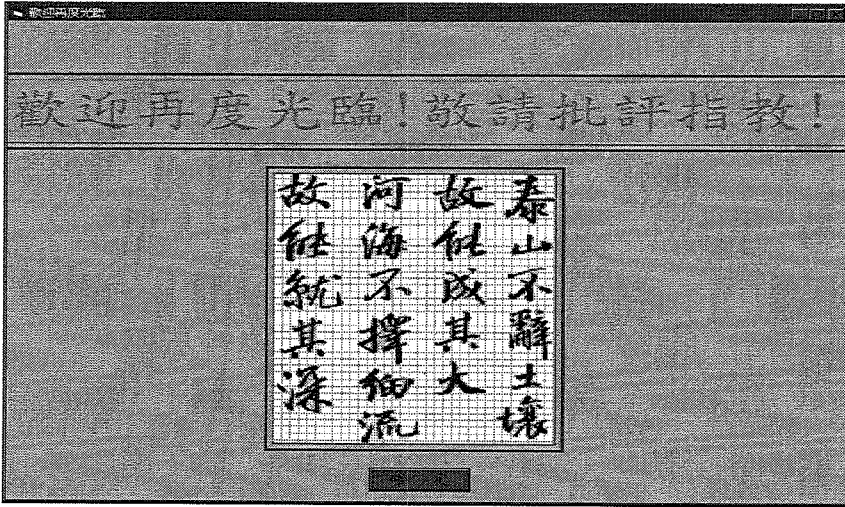 歡迎再度光臨
歡迎再度光臨!敬請批評指教!
泰山不辭土壤
故能成其大
河海不擇細流
故能就其深